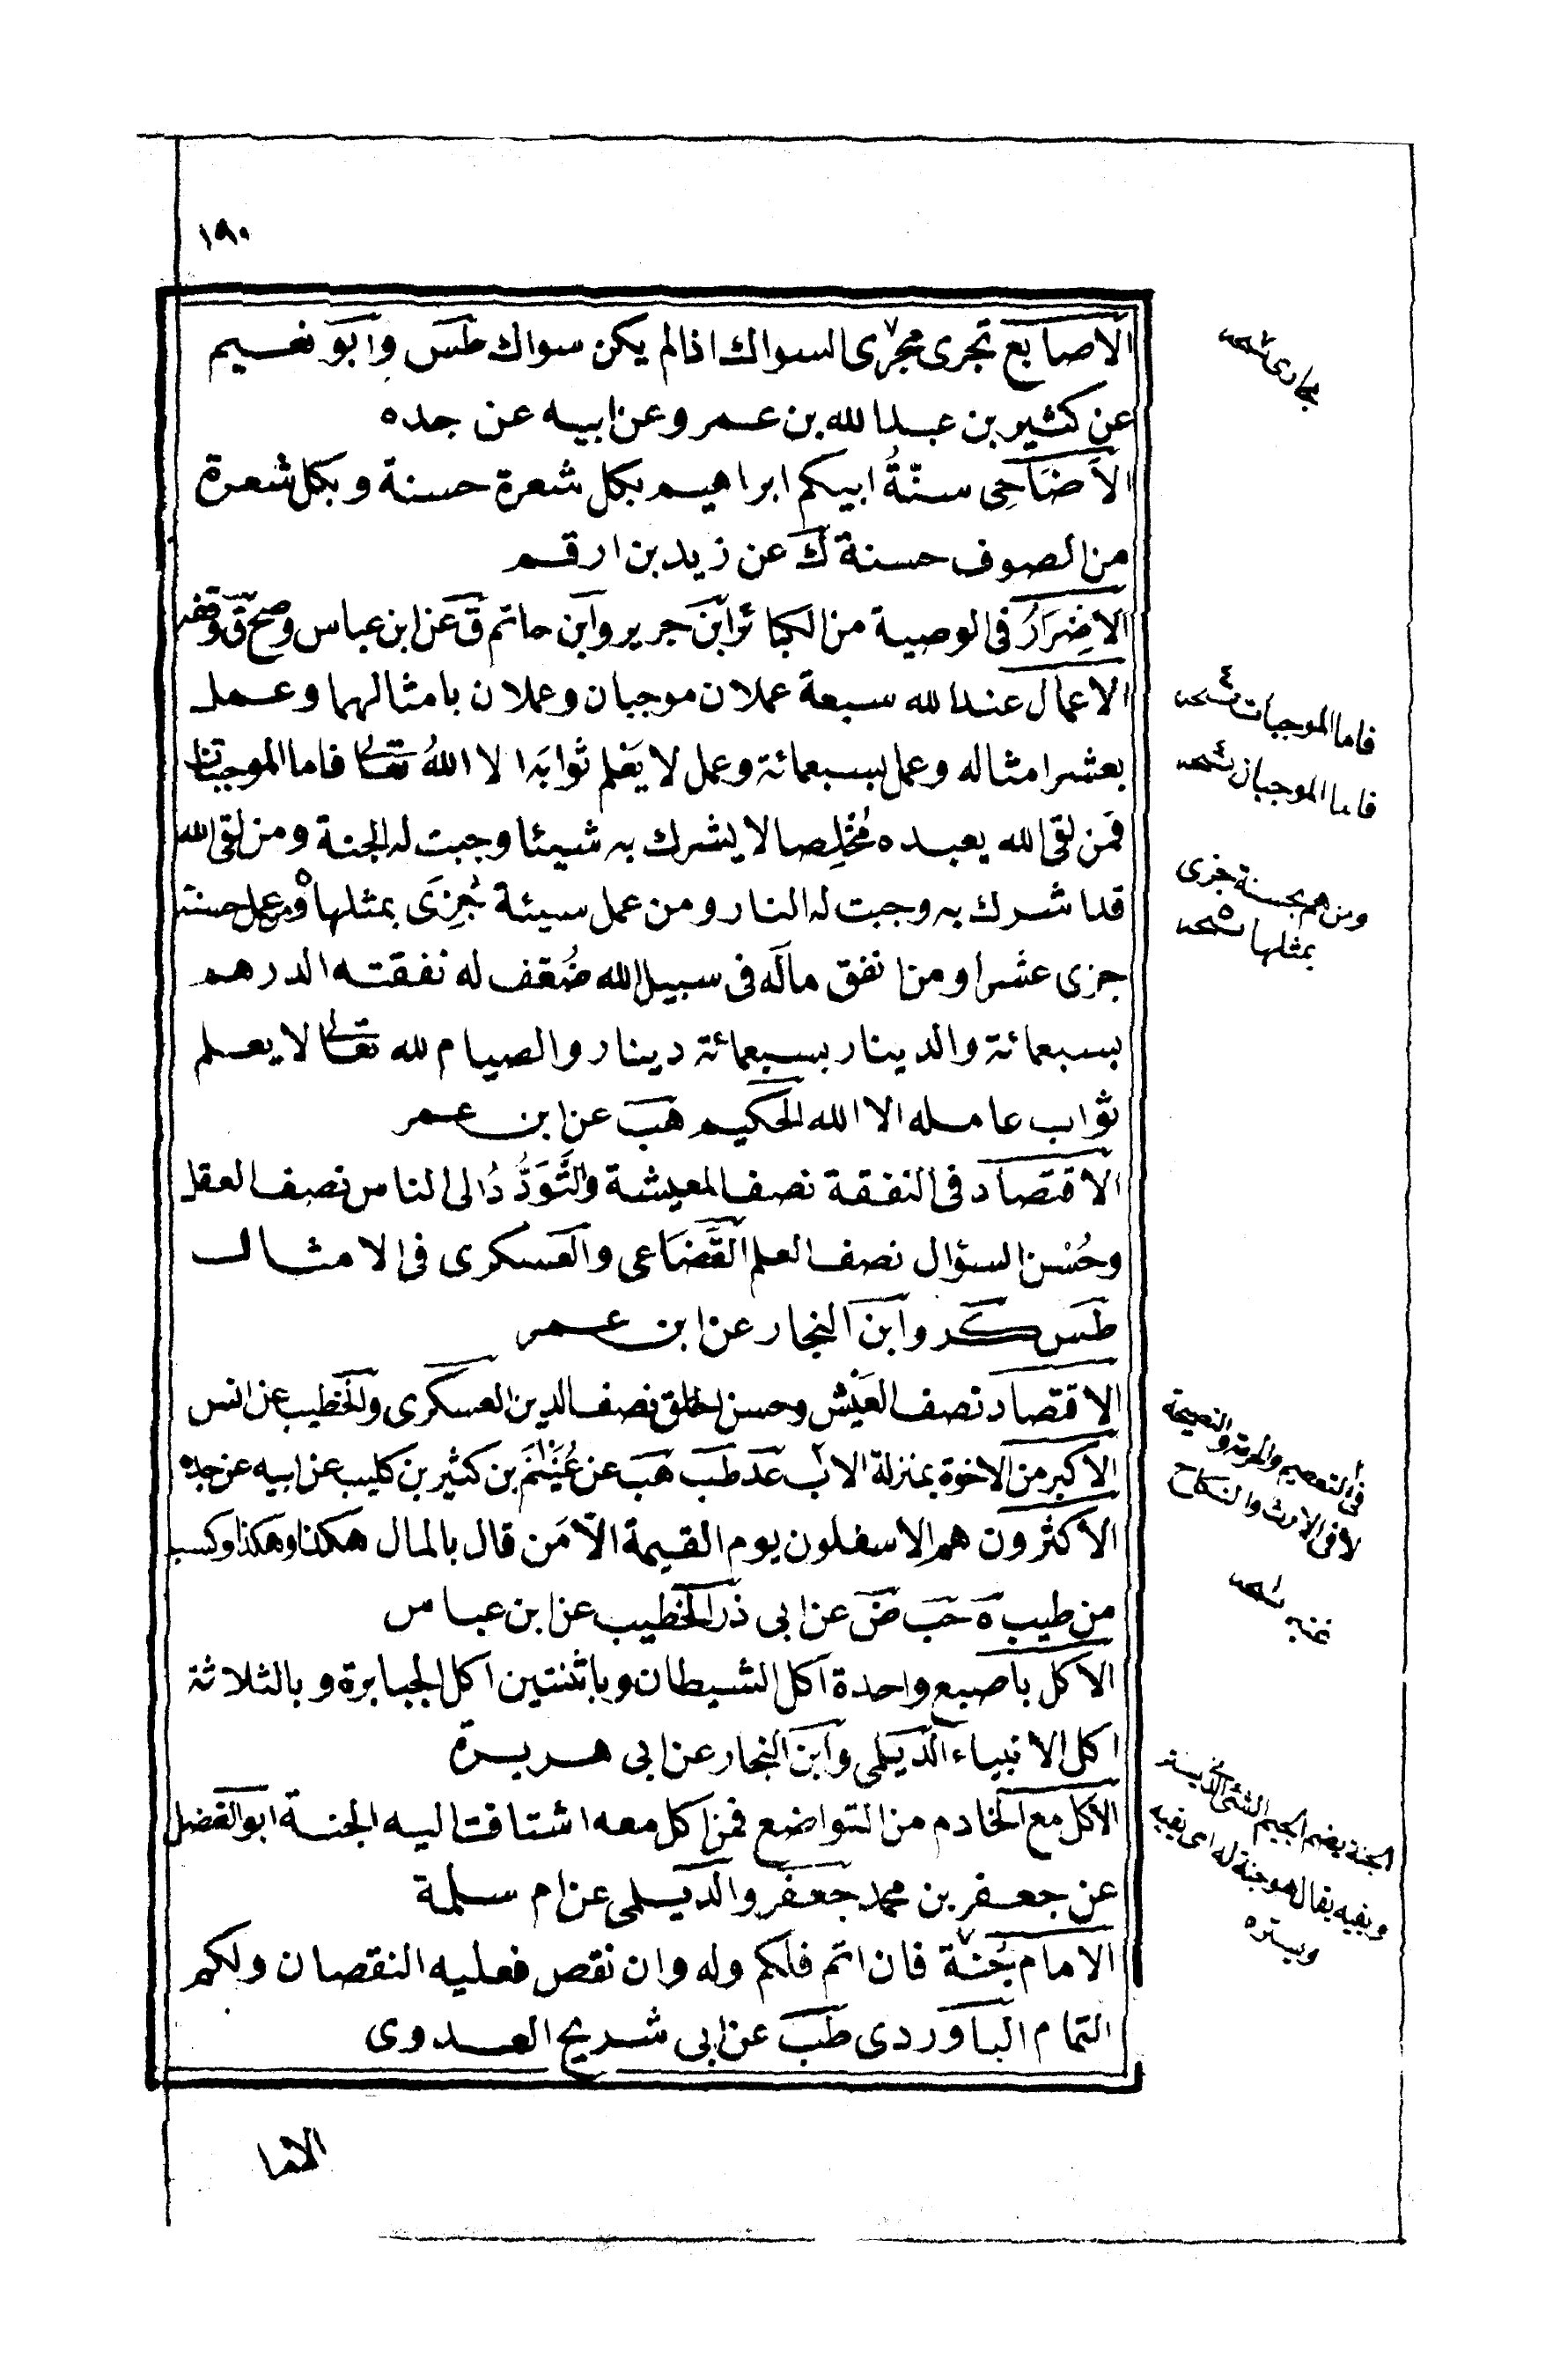 ١٩٠
الاصابع تجرى مجرى السواك اذا لم يكن سواك طس وابو نعيم
عن كثير بن عبد الله بن عمر وعن ابيه عن جده
الاَضَاحِى سنّةُ ابيكم ابراهيم بكل شعرة حسنة وبكل شعرة
من الصوف حسنة ك عن زيد بن ارقم
الاضِرَارُ فى الوصية من الكبائر ابن جرير وابن حاتم ق عن ابن عباس وصح ق وقفه
الاعمال عند الله سبعة عملان موجبان وعملان بامثالهما وعمل
بعشر امثاله وعمل بسبعمائة وعمل لا يَعْلم ثوابَه الا اللهُ تعالى فاما الموجبتان
فمن لقى الله يعبده مُخْلِصا لا يشرك به شيئا وجبت له الجنة ومن لقى الله
قد اشرك به وجبت له النار ومن عمل سيئة جُزِىَ بمثلها ومن عمل حسنة
جزى عشرا ومن انفق ماله فى سبيل الله ضُعّف له نفقته الدرهم
بسبعمائة والدينار بسبعمائة دينار والصيام لله تعالى لا يعلم
ثواب عامله الا الله الحكيم هب عن ابن عمر
الاقتصاد فى النفقة نصف المعيشة والتَّوَدُّدُ الى الناس نصف العقل
وحُسْن السؤال نصف العلم القضاعى والعسكرى فى الامثال
طس كر وابن النجار عن ابن عمر
الاقتصاد نصف العَيْش وحسن الخلق نصف الدين العسكرى والخطيب عن انس
الاكبر من الاخوة بمنزلة الاب عد طب هب عن عُثَيْم بن كثير بن كليب عن ابيه عن جده
الاكثرون هم الاسفلون يوم القيمة الاّ مَن قال بالمال هكذا وهكذا وكسبه
من طيب ه حب ض عن ابى ذر الخطيب عن ابن عباس
الاكل باصبع واحدة اكل الشيطان وباثنتين اكل الجبابرة وبالثلاثة
اكل الانبياء الديلمى وابن النجار عن ابى هريرة
الاكل مع الخادم من التواضع فمن اكل معه اشتاقت اليه الجنة ابو الفضل
عن جعفر بن محمد جعفر والديلمى عن ام سلمة
الامام جُنّة فان اتم فلكم وله وان نقص فعليه النقصان ولكم
التمام الباوردى طب عن ابى شريح العدوى
مجارى نسخه
فاما الموجبات نسخه
فاما الموجبان نسخه
ومن هم بحسنة جزى
بمثلها نسخه
فى التعصيم والحرمة والنصيحة
لا فى الارث والنكاح
نسخه
الجنة بضم الجيم الشئ الذى يستر
ويقيه يقال هو جنة له اى يقيه
ويستره
الاما